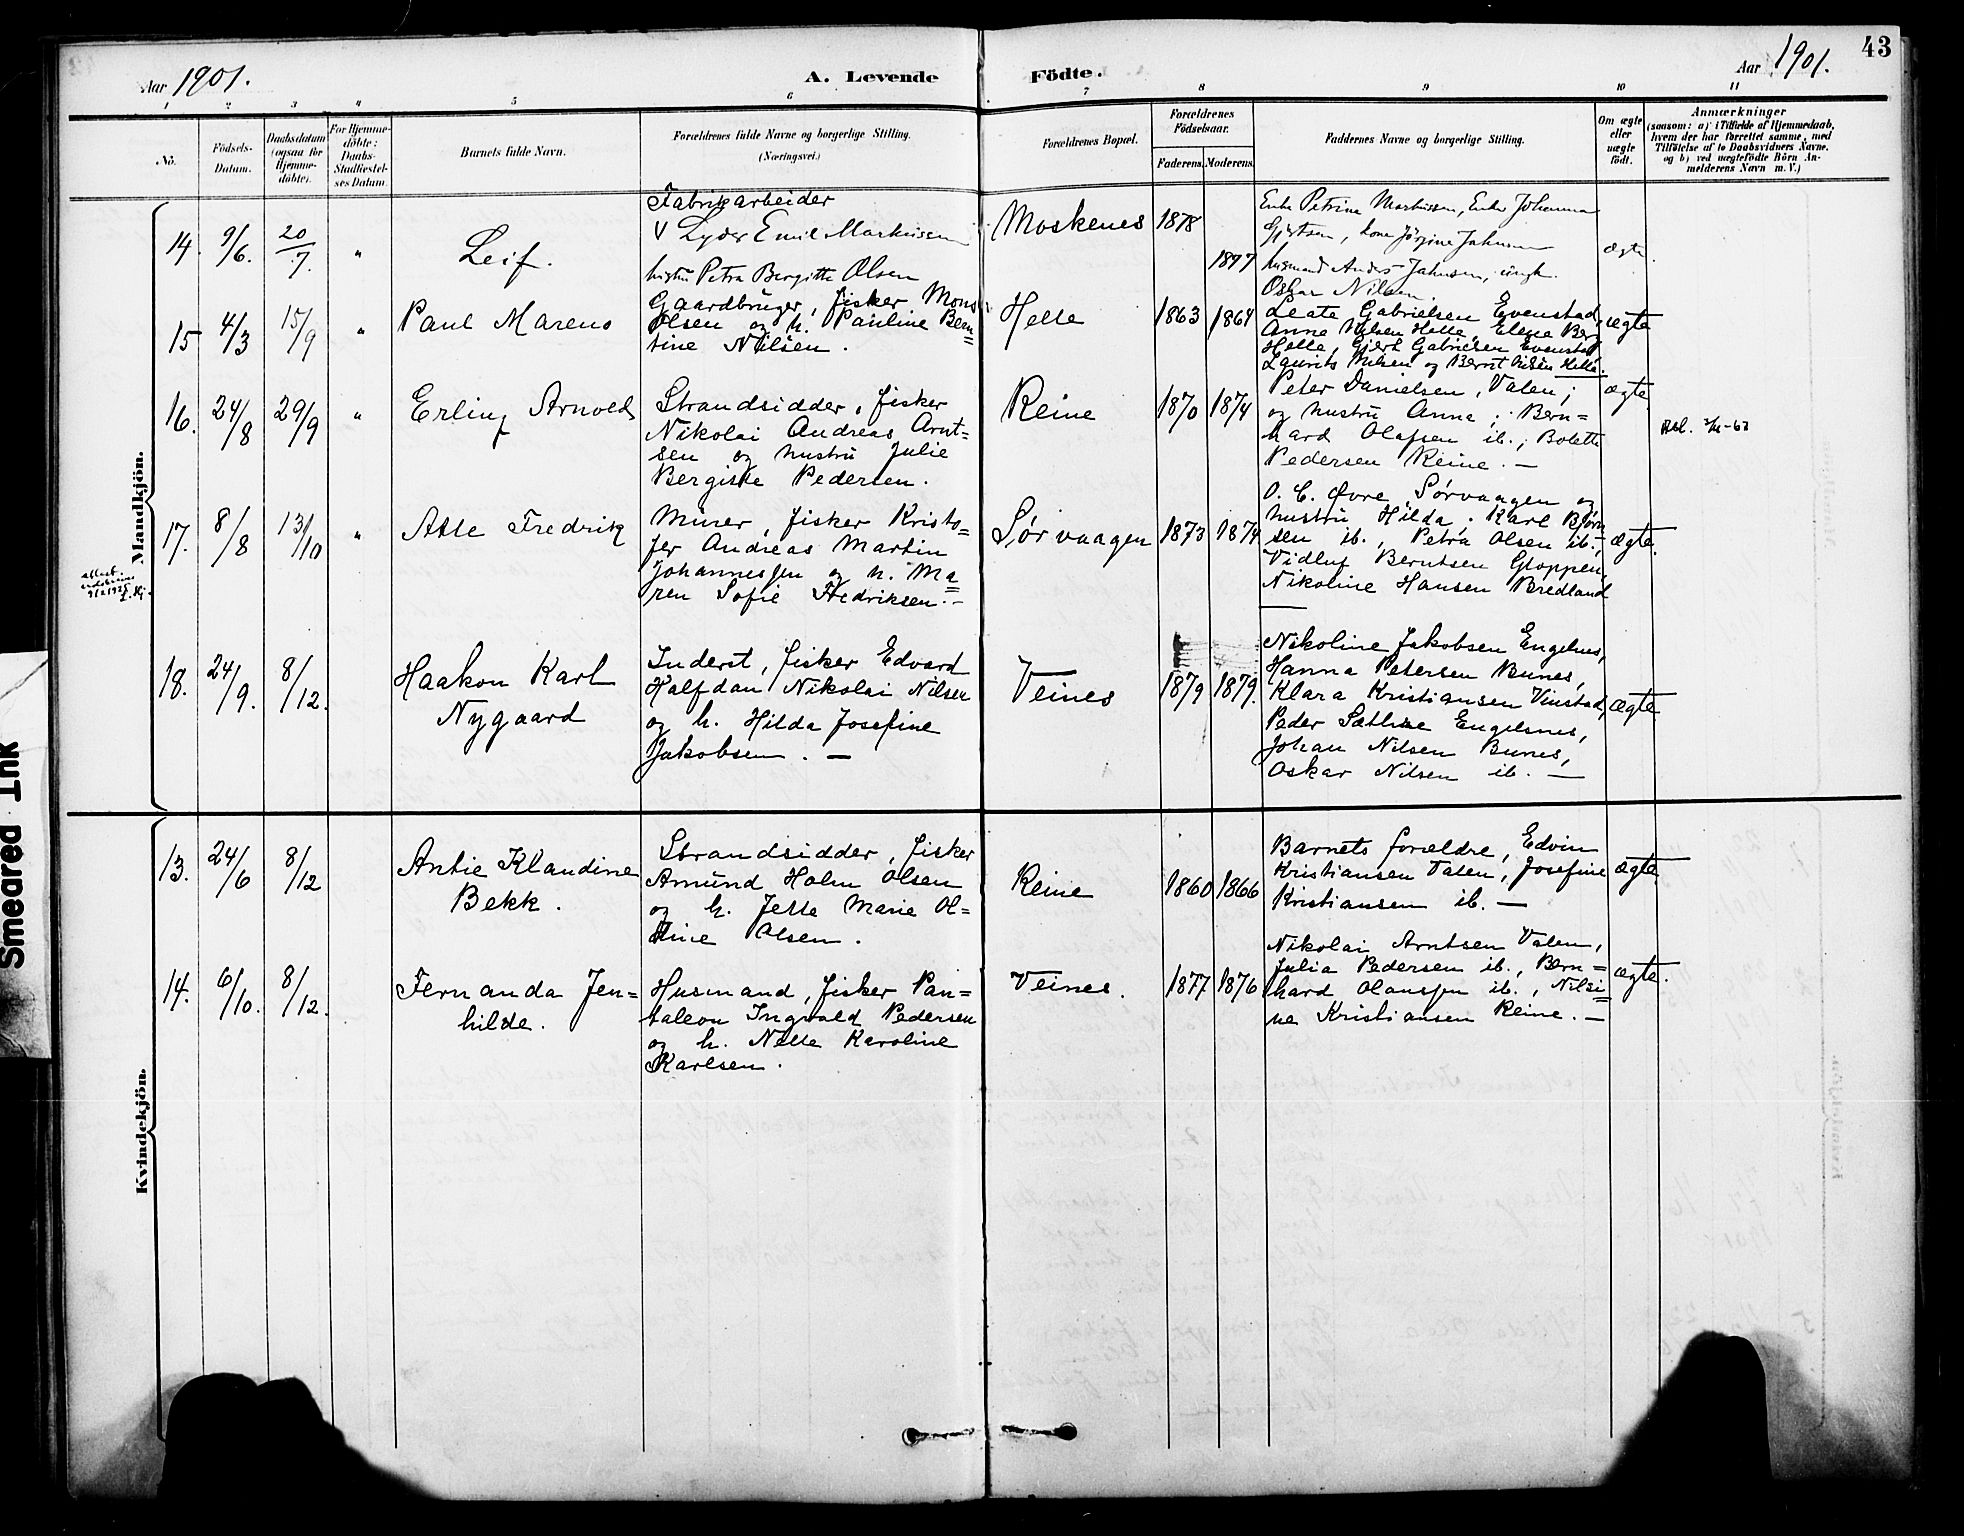 43
Aar 1901.
A. Levende Födte.
Aar 1901.
1 2 3 4 5 6 7 8 9 10 11
No.
Födsels-Datum.
Daabsdatum (ogsaa for Hjemme-döbte).
For Hjemme-döbte: Daabs-Stadfæstel-ses Datum.
Barnets fulde Navn.
Forældrenes fulde Navne og borgerlige Stilling.
(Næringsvei.)
Forældrenes Bopæl.
Forældrenes Födselsaar.
Faderens. Moderens.
Faddernes Navne og borgerlige Stilling.
Om ægte eller uægte födt.
Anmærkninger
(saasom: a) i Tilfælde af Hjemmedaab, hvem der har forrettet samme, med Tilföielse af to Daabsvidners Navne, og b) ved uægtefödte Börn An-melderens Navn m. V.)
Mandkjön.
14. 9/6. 20/7. "
Leif.
Fabrikarbeider
Lyder Emil Markusen
hustru Petra Bergitte Olsen
Moskenes 1878 1877
Enke Petrine Markussen, Enke Johanna
Gjertsen, kone Jörgine Jahnsen
husmand Anders Jahnsen, ungk.
Oskar Nilsen.
ægte.
15 4/3 15/9 "
Paul Mareno
Gaardbruger, fisker Mons
Olsen og h. Pauline Bern=
tine Nilsen.
Helle 1863 1864
Leate Gabrielsen Evenstad,
Anna Nilsen Helle, Elene Berg
Helle, Gjert Gabrielsen Evenstad
Laurits Nilsen og Bernt Nilsen Helle.
ægte
16. 24/8 29/9 "
Erling Arnold
Strandsidder, fisker
Nikolai Andreas Arnt=
sen og hustru Julie
Bergitte Pedersen.
Reine 1870 1874
Peter Danielsen, Valen;
og hustru Anna; Bern=
hard Olafsen ib.; Bolette
Pedersen Reine. —
ægte
17. 8/8 13/10 "
Atle Fredrik
Murer, fisker Kristo=
fer Andreas Martin
Johannessen og h. Ma=
ren Sofie Fredriksen. —
Sørvaagen 1873 1874
O. C. Øvre, Sørvaagen og
hustru Hilda, Karl Bjørn
sen ib., Petra Olsen ib.,
Vidluf Berntsen Gloppen,
Nikoline Hansen Bredland
ægte.
18. 24/9. 8/12.
Haakon Karl
Nygaard
Inderst, fisker Edvard
Halfdan Nikolai Nilsen
og h. Hilda Josefine
Jakobsen. —
Veines 1879 1879.
Nikoline Jakobsen Engelnes,
Hanna Petersen Bunes,
Klara Kristiansen Vinstad,
Peder Sætline Engelsnes,
Johan Nilsen Bunes,
Oskar Nilsen ib. —
ægte
Kvindekjön.
13. 24/6 8/12
Antie Klandine
Bekk.
Strandsidder, fisker
Amund Holm Olsen
og h. Jette Marie Ol=
tine Olsen.
Reine 1860 1866
Barnets forældre, Edvin
Kristiansen Valen, Josefine
Kristiansen ib. —
ægte.
14. 6/10. 8/12.
Fernanda Jen=
hilde.
Husmand, fisker Pan=
taleon Ingvald Pedersen
og h. Nelle Karoline
Karlsen.
Veines. 1877 1876
Nikolai Arntsen Valen,
Julia Pedersen ib., Bern=
hard Olanssen ib., Nilsi=
ne Kristiansen Reine. —
ægte.
Smeared Ink